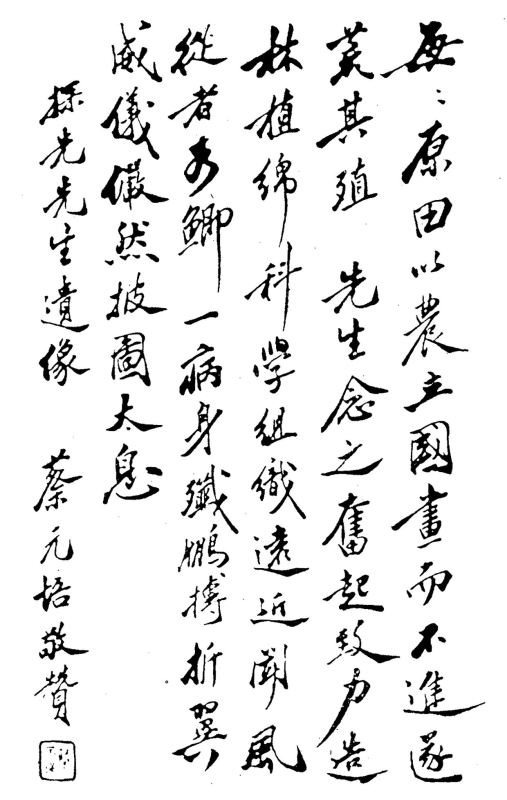 每々原田以農立國畫而不進遂
荒其殖 先生念之奮起致力造
林植綿科學組織遠近聞風
從者如鯽一病身殲鵬搏折翼
威儀儼然披圖太息
探先先生遺像 蔡元培敬贊